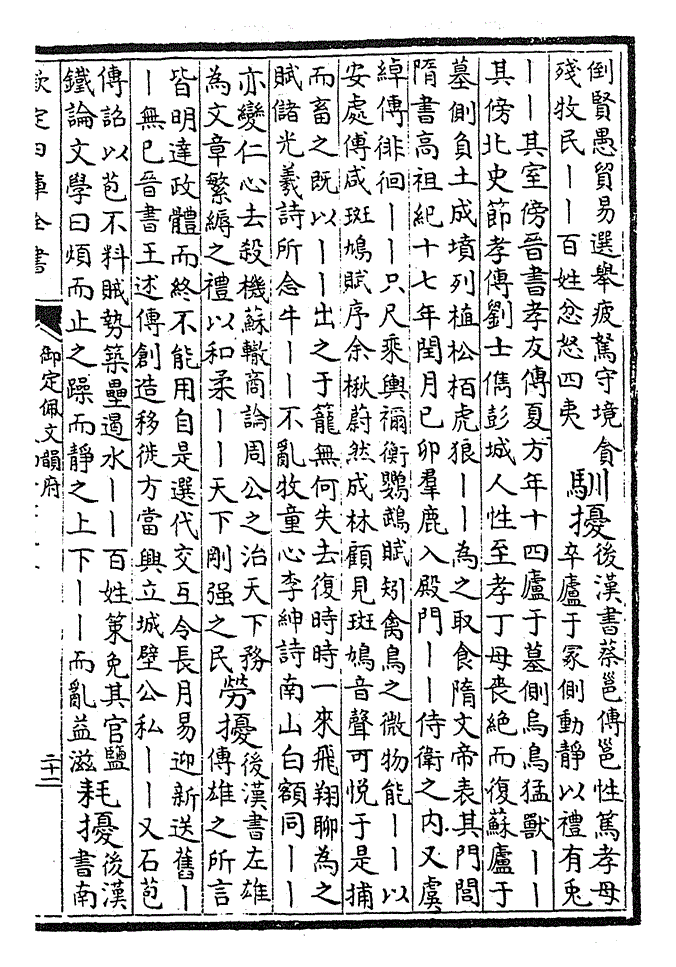 倒賢愚貿易選舉疲駑守境貪
殘牧民――百姓忿怒四夷
馴擾
後漢書蔡邕傳邕性篤孝母
卒廬于冢側動靜以禮有兎
――其室傍晉書孝友傳夏方年十四廬于墓側烏鳥猛獸――
其傍北史節孝傳劉士儁彭城人性至孝丁母喪絶而復蘇廬于
墓側負土成墳列植松栢虎狼――為之取食隋文帝表其門閭
隋書高祖紀十七年閏月己卯羣鹿入殿門――侍衛之内又虞
綽傳徘徊――只尺乘輿禰衡鸚鵡賦矧禽鳥之微物能――以
安處傅咸斑鳩賦序余楸蔚然成林顧見斑鳩音聲可悦于是捕
而畜之既以――出之于籠無何失去復時時一來飛翔聊為之
賦儲光羲詩所念牛――不亂牧童心李紳詩南山白額同――
亦變仁心去殺機蘇轍商論周公之治天下務
為文章繁縟之禮以和柔――天下剛强之民
勞擾
後漢書左雄
傳雄之所言
皆明達政體而終不能用自是選代交互令長月易迎新送舊―
―無已晉書王述傳創造移徙方當興立城壁公私――又石苞
傳詔以苞不料賊勢築壘遏水――百姓策免其官鹽
鐵論文學曰煩而止之躁而靜之上下――而亂益滋
耗擾
後漢
書南
欽定四庫全書
御定佩文韻府
二十二